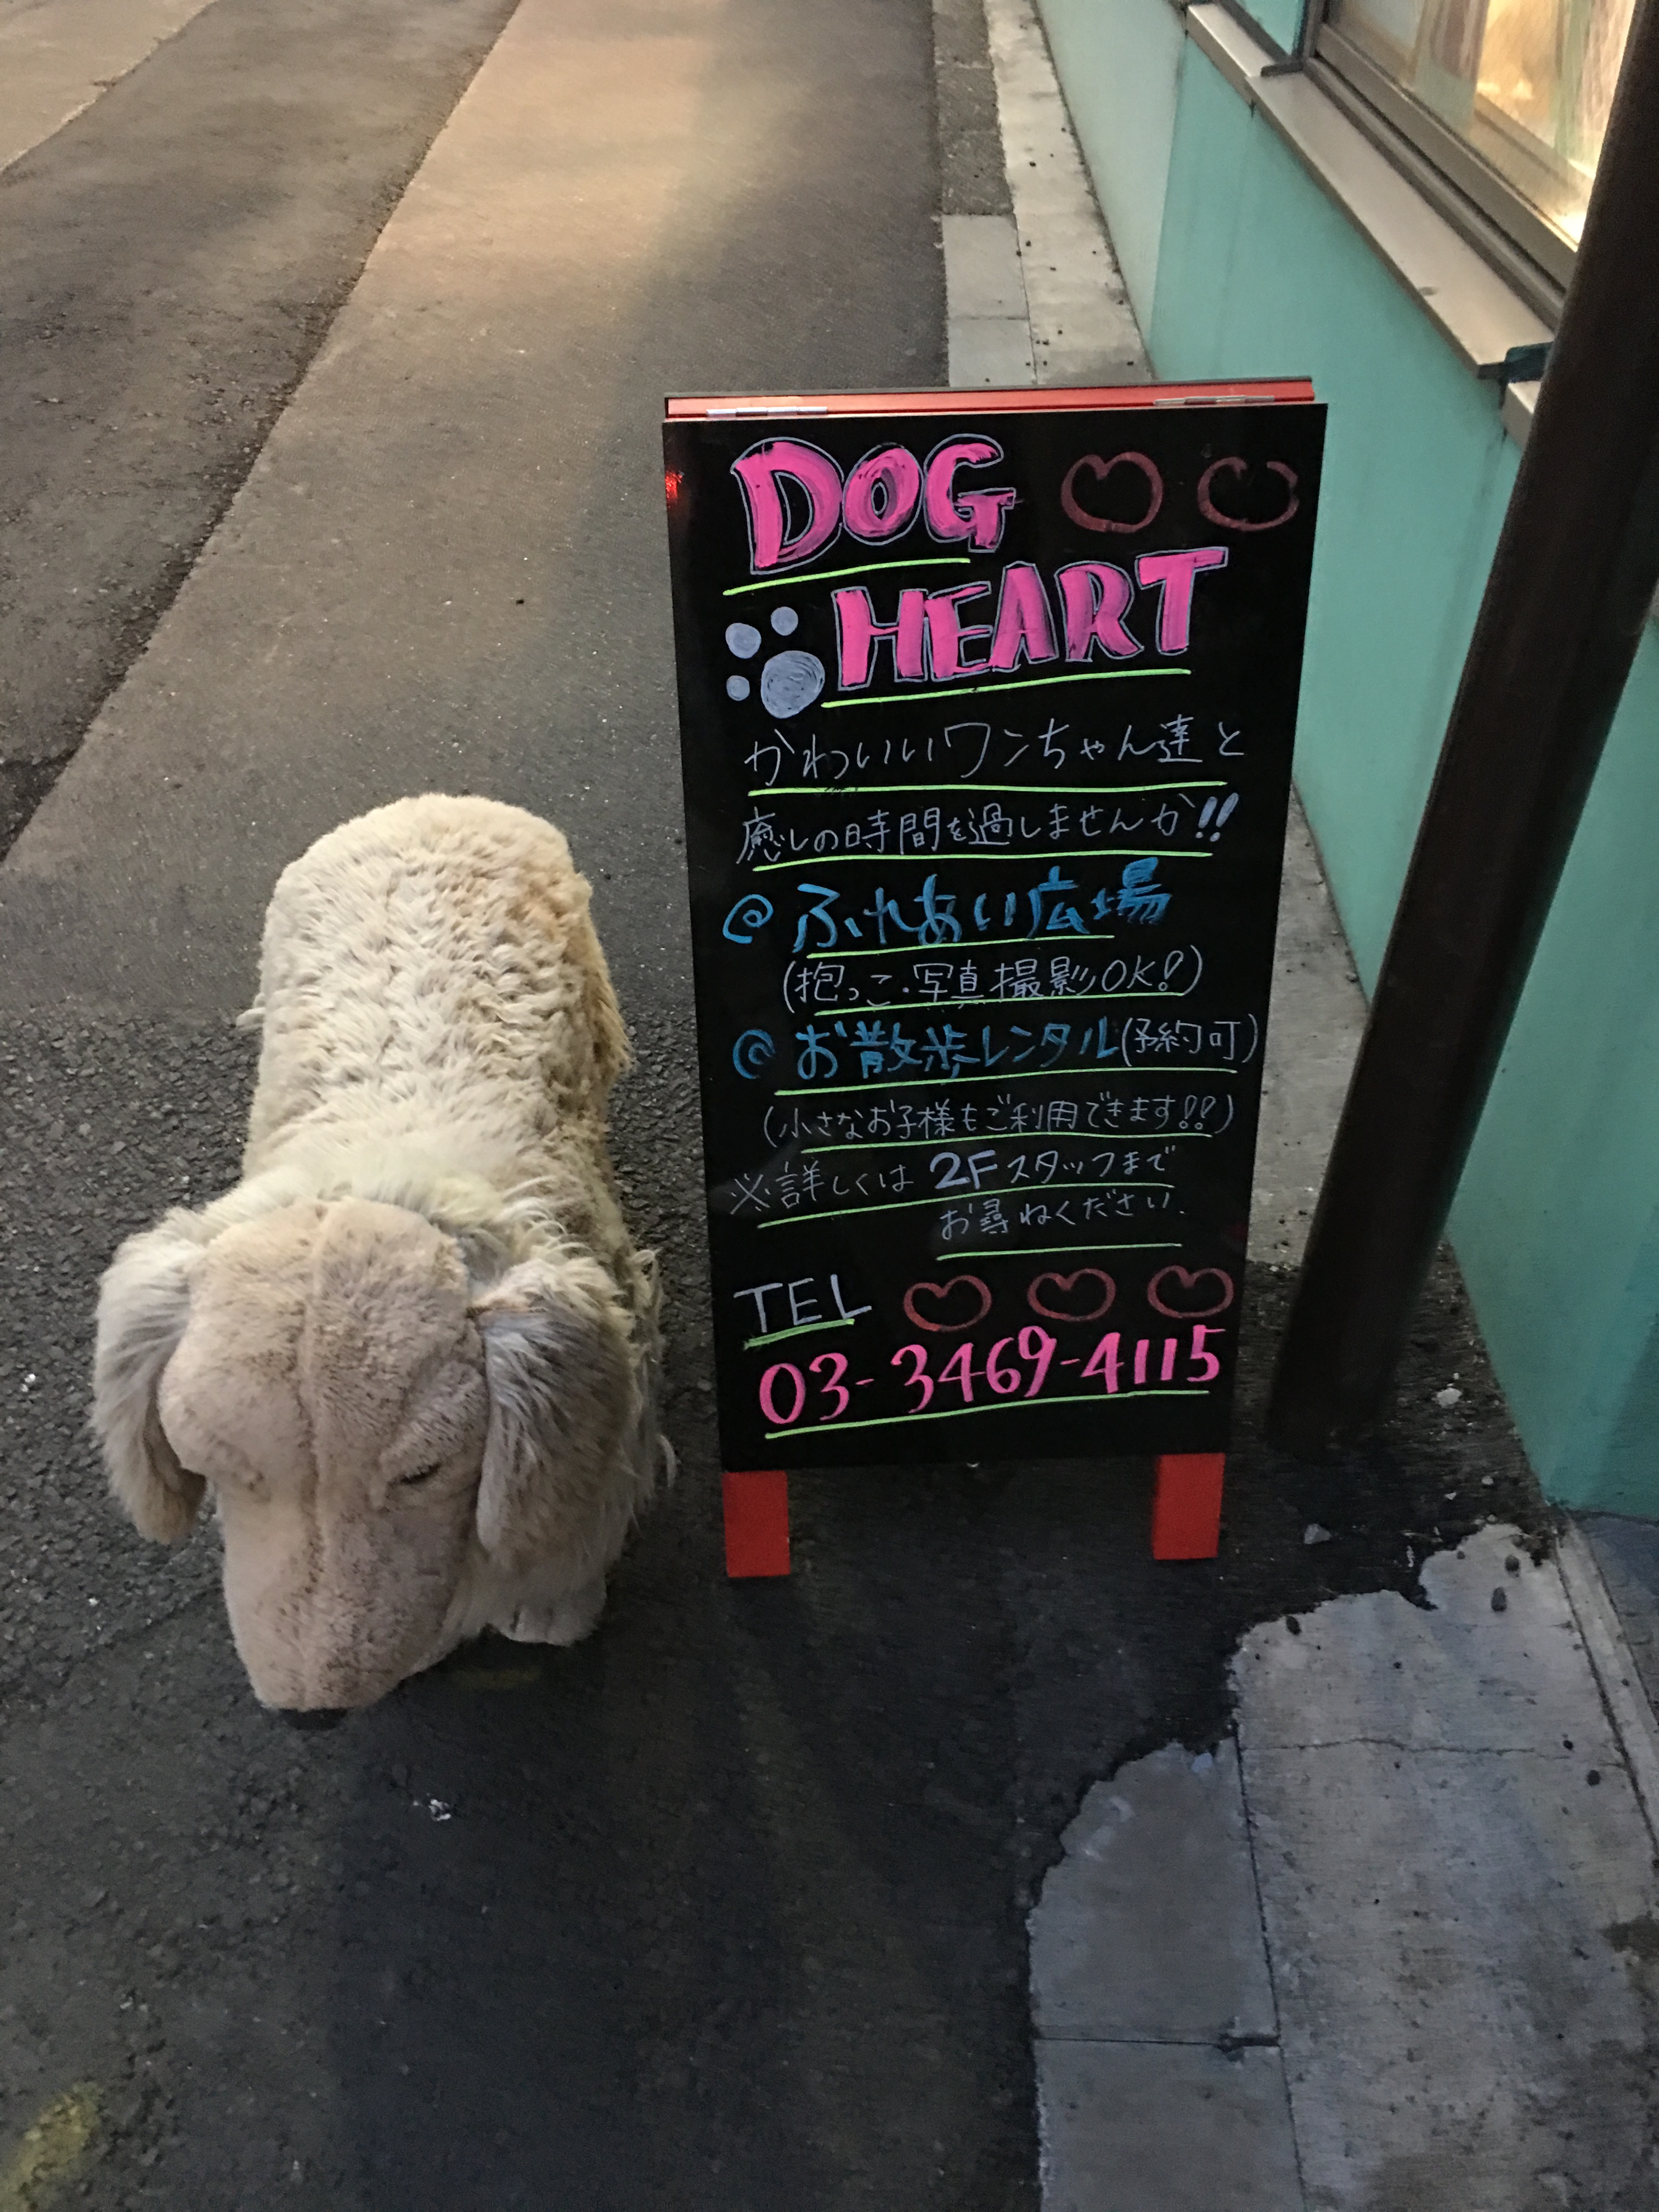 DOG
HEART
かわいいワンちゃん達と
癒しの時間を過しませんか!!
@ ふれあい広場
(抱っこ・写真撮影OK!)
@ お散歩レンタル(予約可)
(小さなお子様もご利用できます!!)
※詳しくは 2Fスタッフまで
お尋ねください.
TEL
03-3469-4115